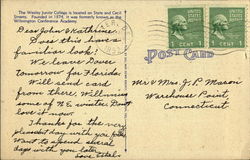 The Wesley Junior College is located on State and Cecil
Streets. Founded in 1874, it was formerly known as the
Wilmington Conference Academy.
Dear John & Kathrine:
Does this have a
familiar look?
We leave Dover
tomorrow for Florida.
Will send card
from there. Will miss
some of N.E. winter. Don't
love it now.
Thanks for the very
pleasant day with you folks.
Want to spend several
days with you later.
Love Ethel.
UNITED STATES POSTAGE
1 CENT 1
UNITED STATES POSTAGE
1 CENT 1
POST CARD
Mr & Mrs. G. P. Mason
Warehouse Point,
Connecticut